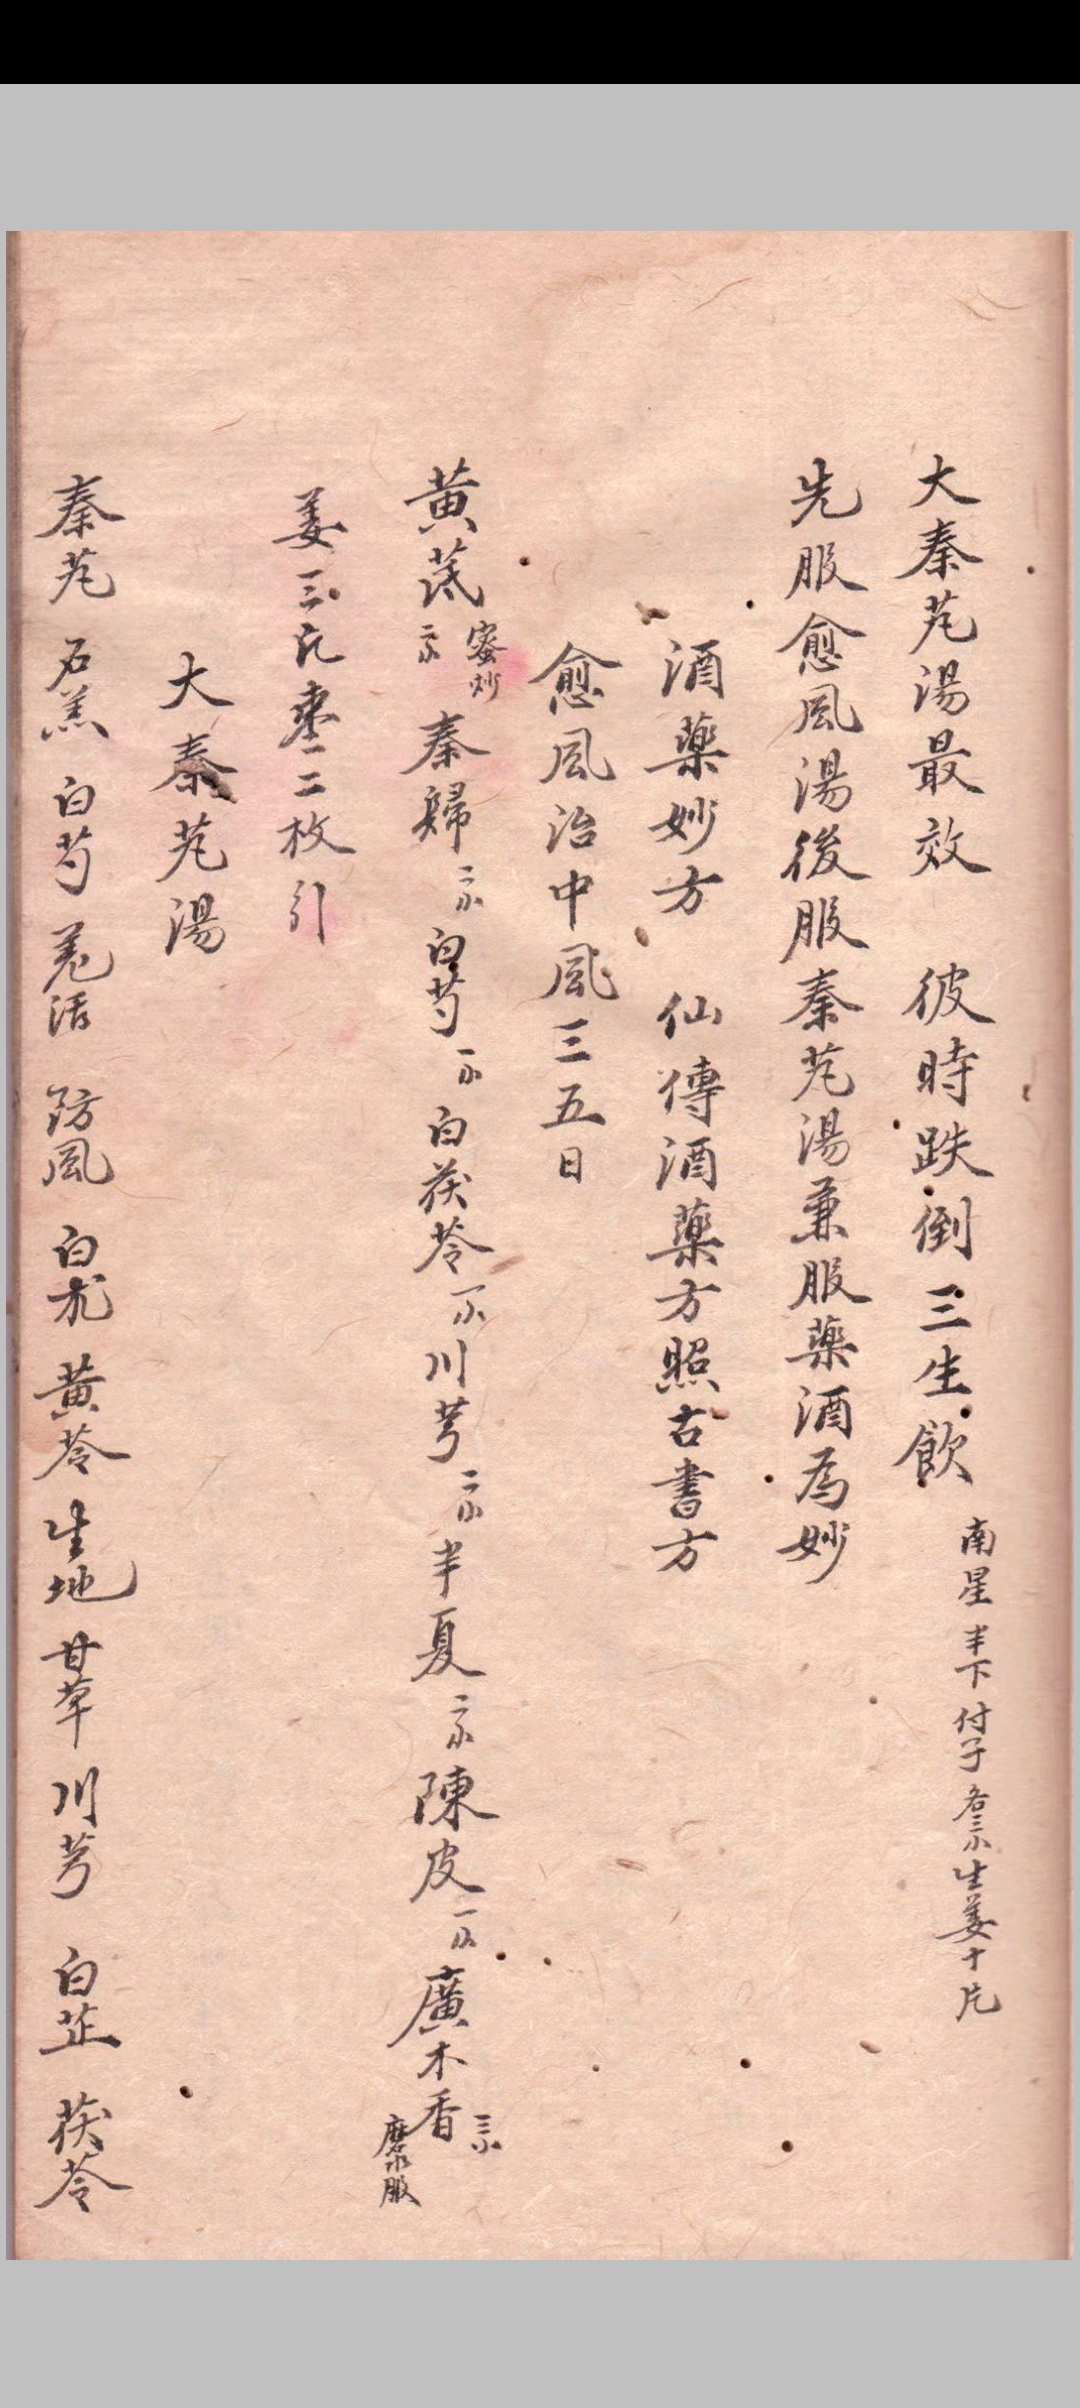 大秦艽湯最效　彼時跌倒三生飲　南星半下付子各三小生姜十片
先服愈風湯後服秦艽湯兼服薬酒為妙
酒薬妙方　仙傳酒薬方照古書方
愈風治中風三五日
黄茋蜜炒秦歸二白芍一白茯苓一川芎二半夏二陳皮一廣木香三磨水服
姜三片棗二枚引
大秦艽湯
秦艽　石羔　白芍　羌活　防風　白朮　黄芩　生地　甘草　川芎　白芷　茯苓